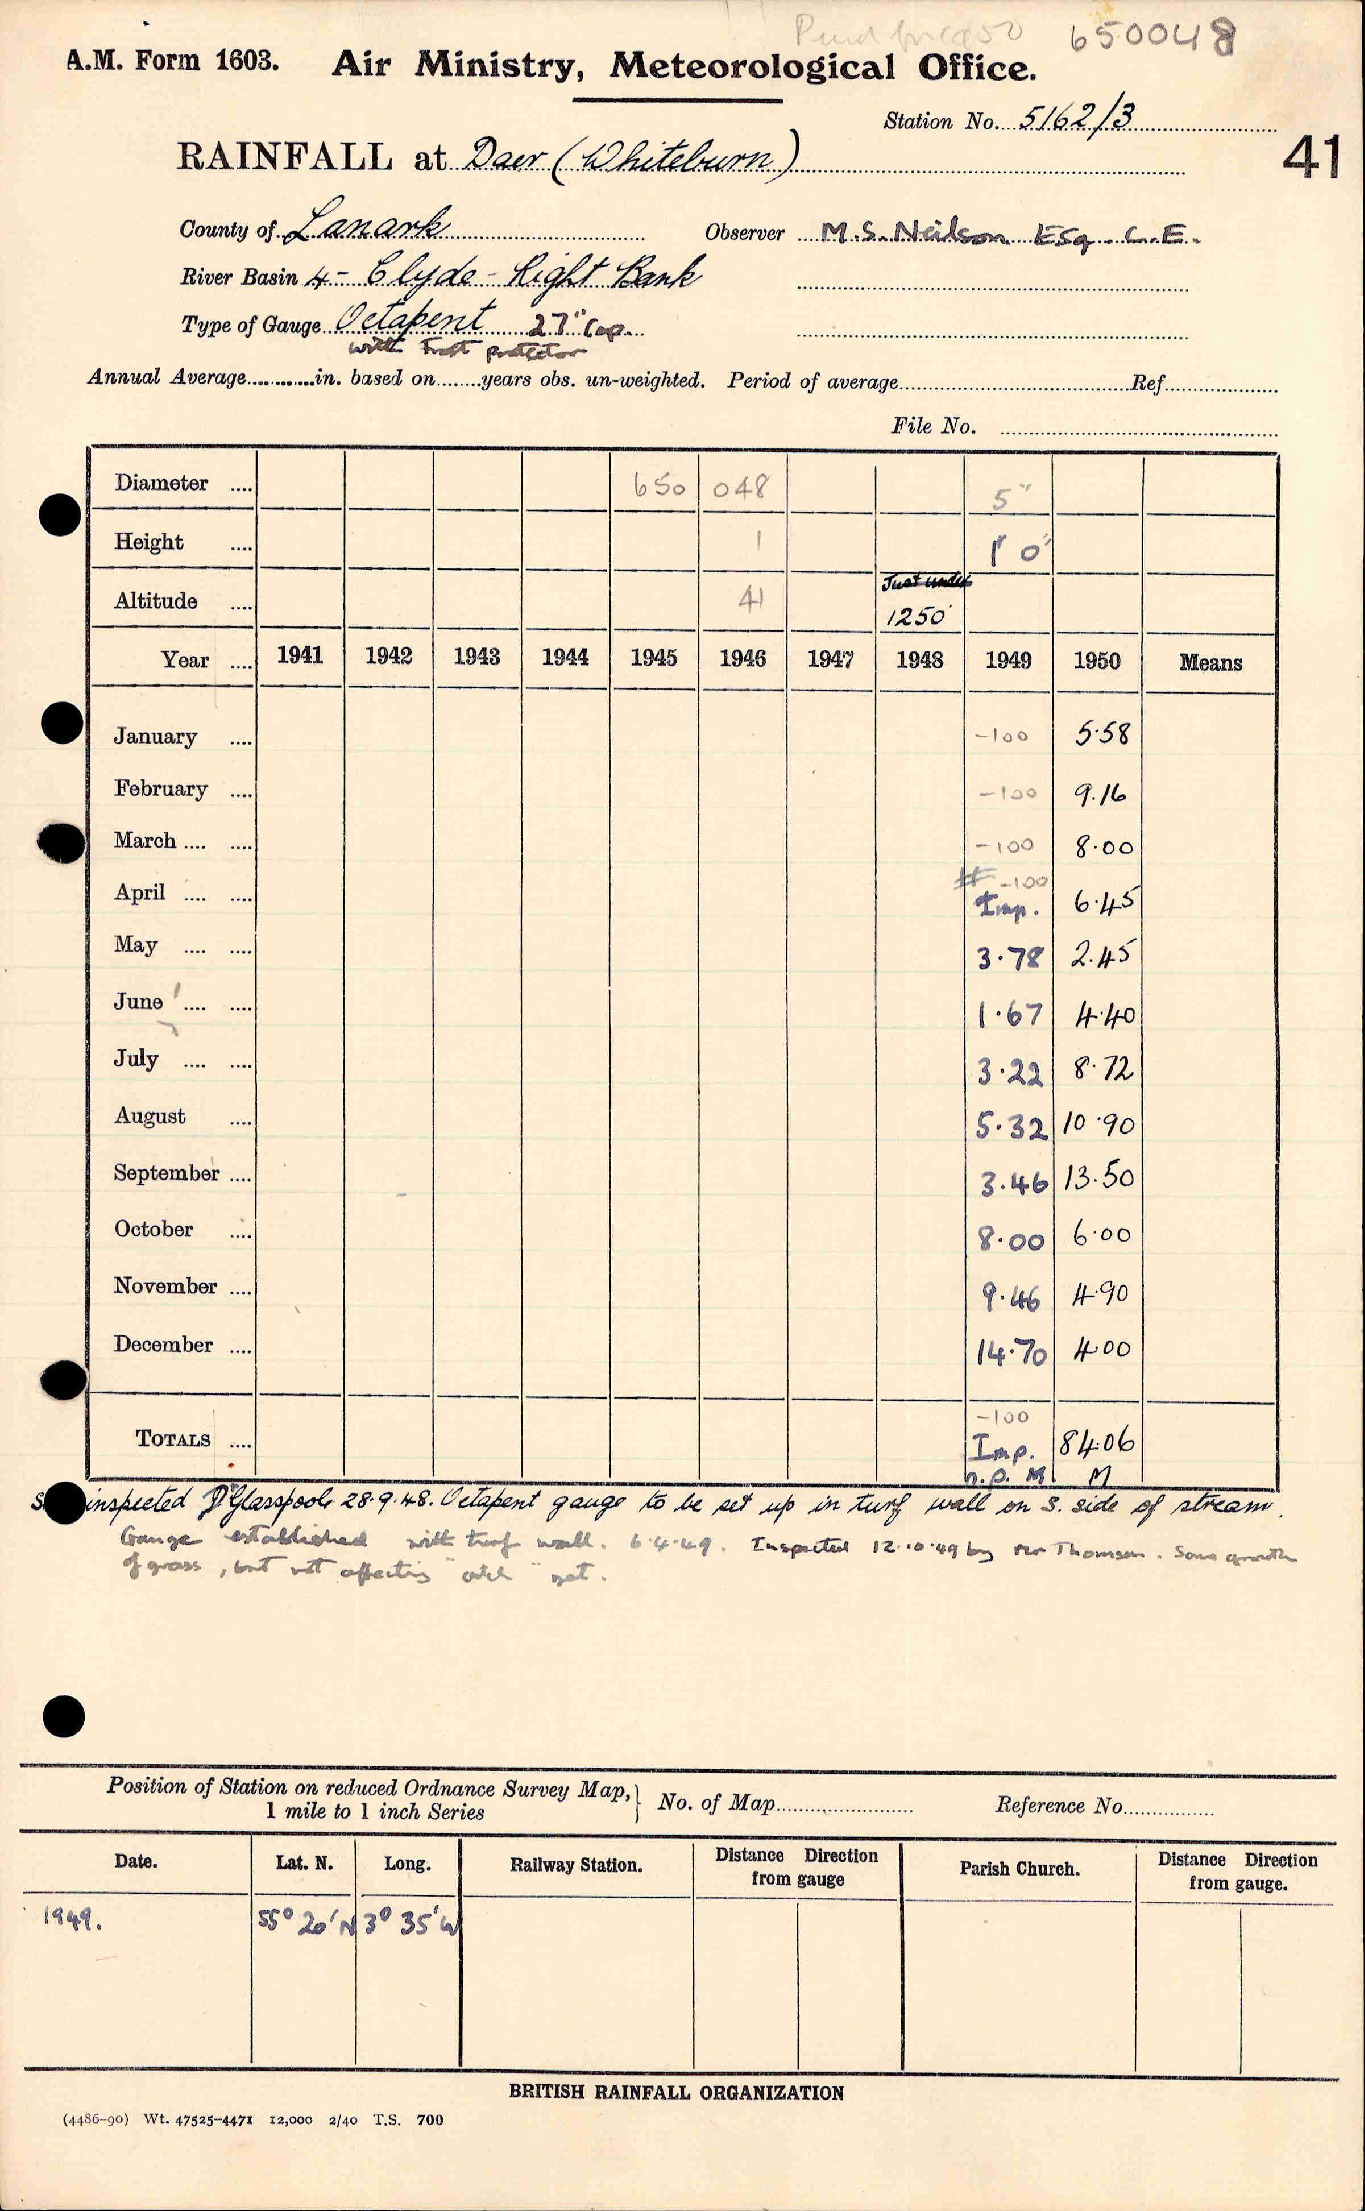 650048
A.M. Form 1603. Air Ministry, Meteorological Office.
Station No. 5162/3
41
RAINFALL at Daer (Whiteburn)
County of Lanark Observer M.S. Neilson Esq. C.E.
River Basin 4 - Clyde - Right Bank
Type of Gauge Octapent 27" Cap.
with Frost protector
Annual Average............in. based on........years obs. un-weighted. Period of average............Ref............
File No. ............
Diameter .... 650 048 5"
Height .... 1 1' 0"
Altitude .... 41 Just under 1250'
Year .... 1941 1942 1943 1944 1945 1946 1947 1948 1949 1950 Means
January .... -100 5.58
February .... -100 9.16
March .... .... -100 8.00
April .... .... -100 Imp. 6.45
May .... .... 3.78 2.45
June .... .... 1.67 4.40
July .... .... 3.22 8.72
August .... 5.32 10.90
September .... 3.46 13.50
October .... 8.00 6.00
November .... 9.46 4.90
December .... 14.70 4.00
-100
TOTALS .... Imp. 84.06
n.p. M M
inspected Dr Glasspoole 28.9.48. Octapent gauge to be set up in turf wall on S. side of stream.
Gauge established with turf wall. 6.4.49. Inspected 12.10.49 by Mr Thomson. Some growth
of grass, but not affecting "catch" yet.
Position of Station on reduced Ordnance Survey Map, 1 mile to 1 inch Series } No. of Map............ Reference No............
Date. Lat. N. Long. Railway Station. Distance Direction from gauge Parish Church. Distance Direction from gauge.
1949. 55° 20' N 3° 35' W
BRITISH RAINFALL ORGANIZATION
(4486-90) Wt. 47525-4471 12,000 2/40 T.S. 700